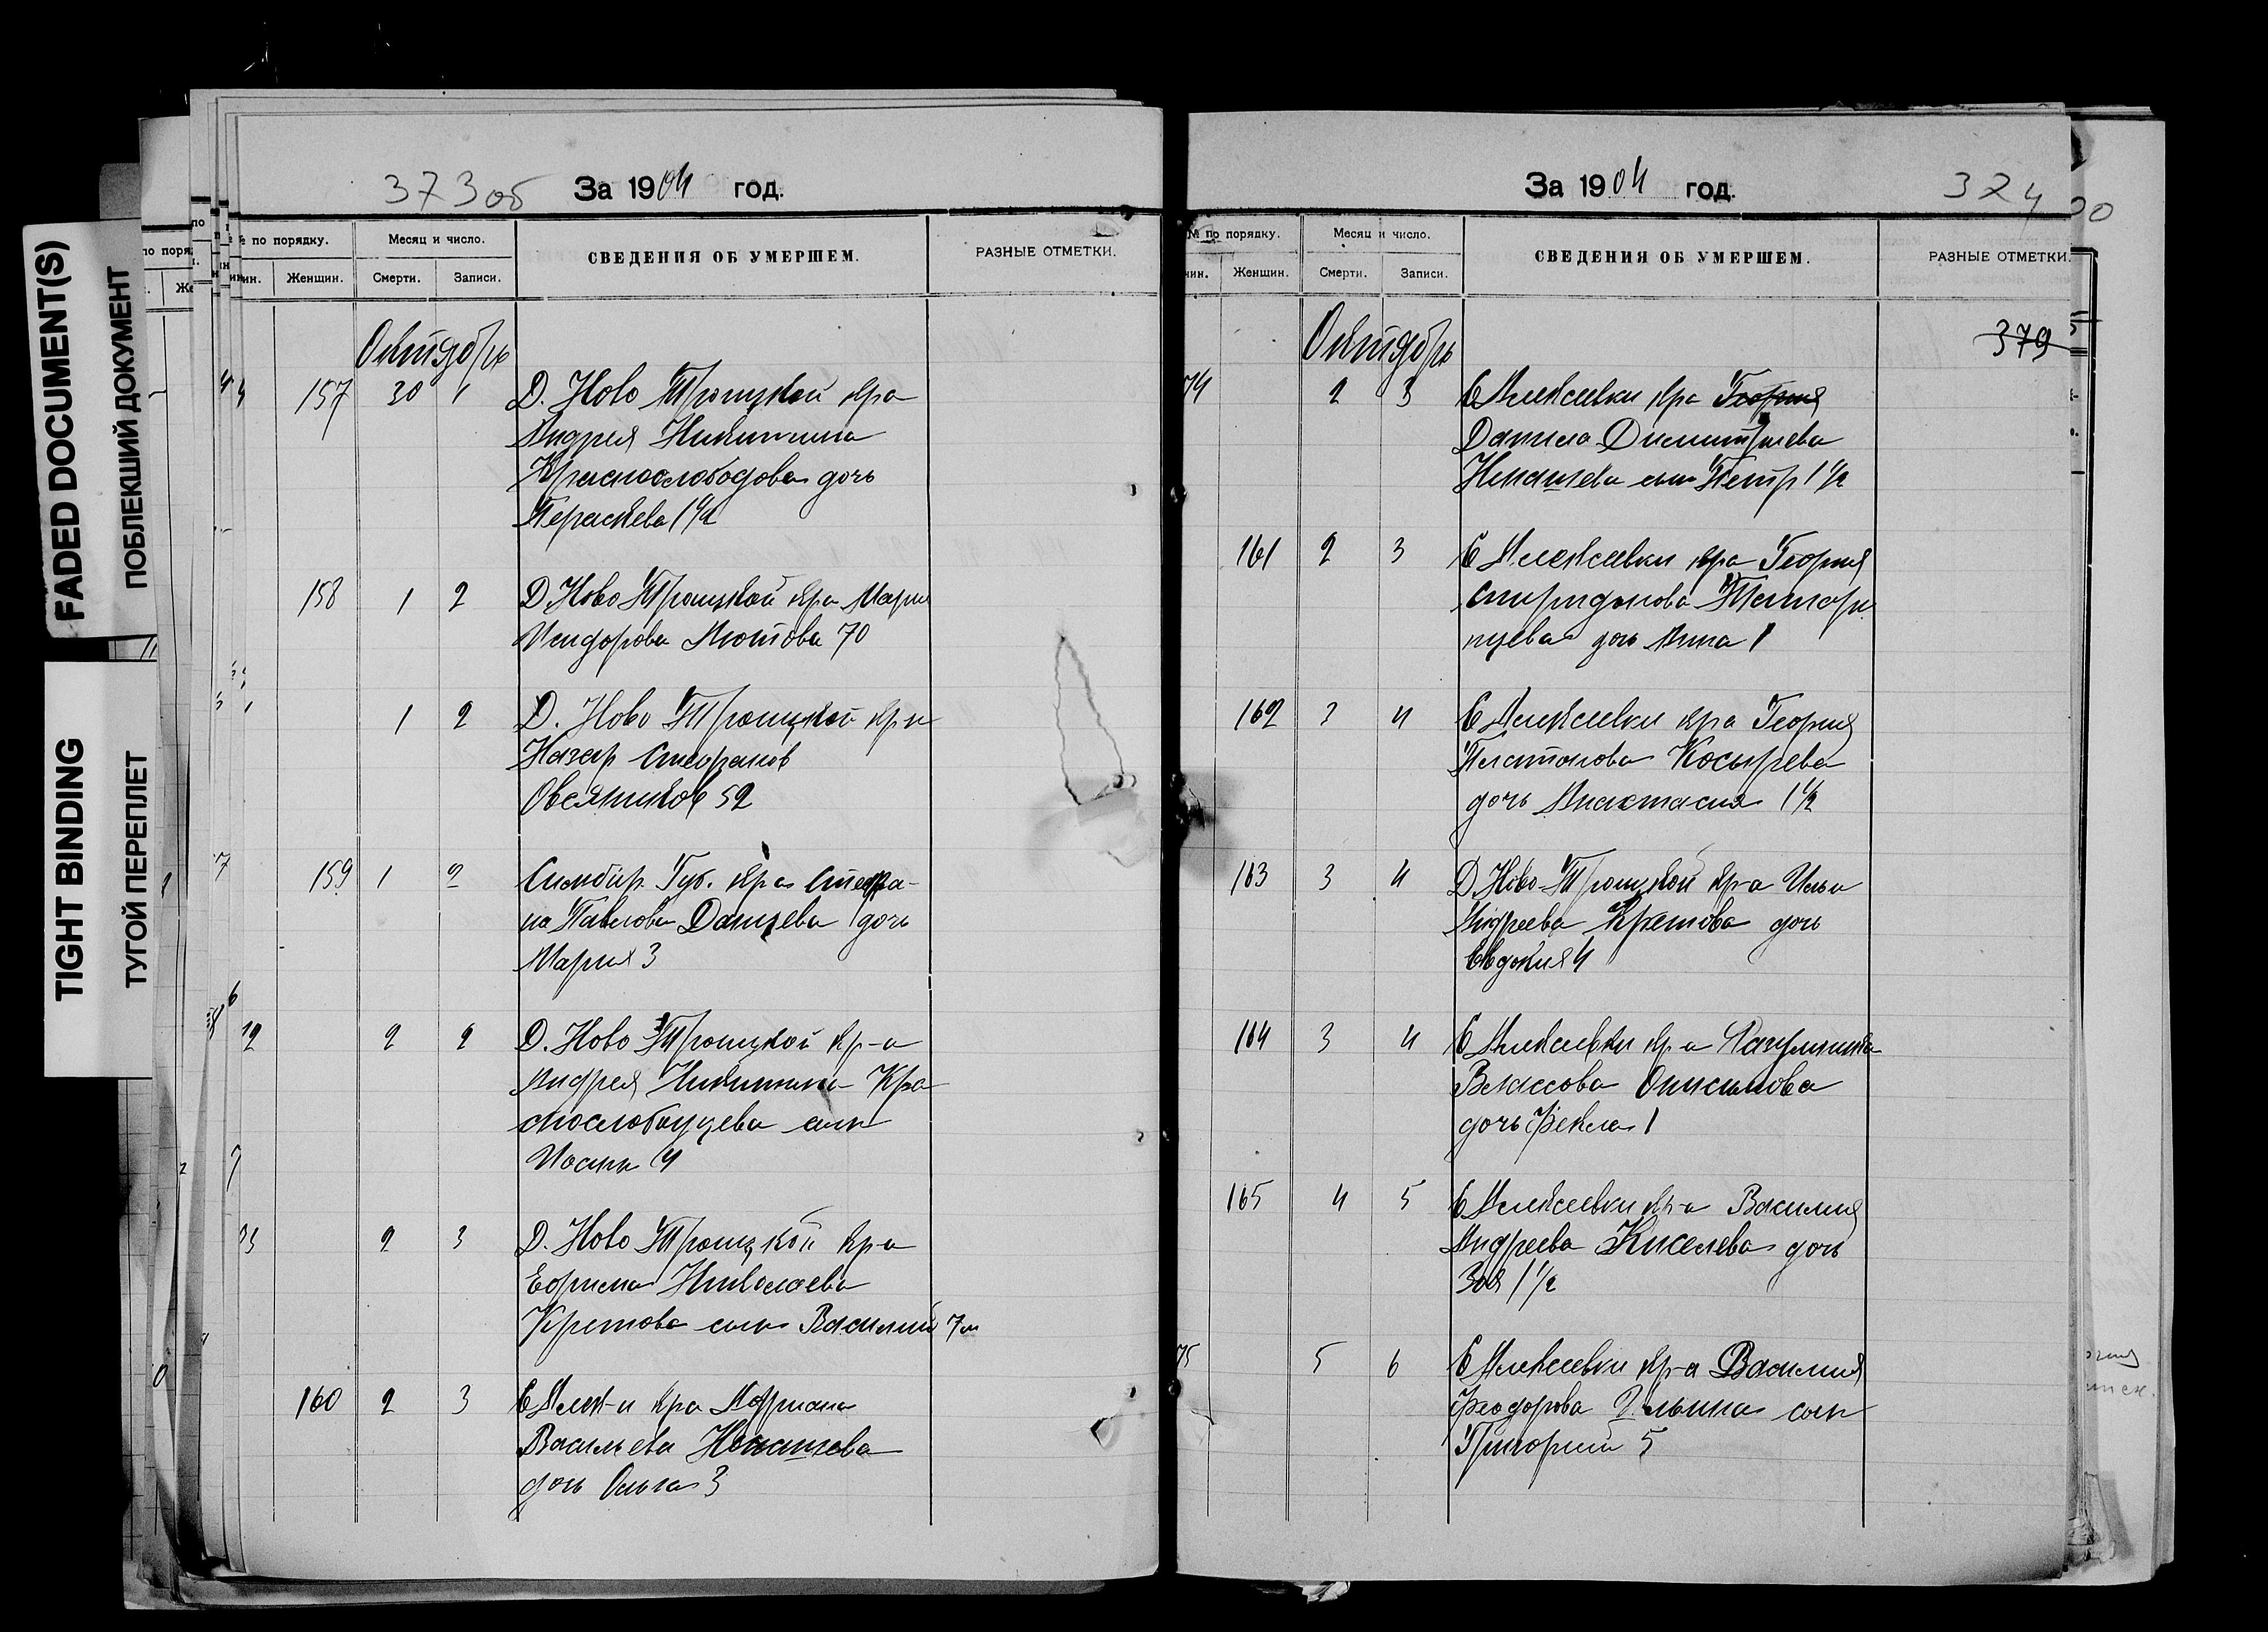 FADED DOCUMENT(S)
ПОБЛЕКШИЙ ДОКУМЕНТ
TIGHT BINDING
ТУГОЙ ПЕРЕПЛЕТ
373об За 1904 год.
№ по порядку. Месяц и число. СВЕДЕНИЯ ОБ УМЕРШЕМ. РАЗНЫЕ ОТМЕТКИ.
Женщин. Смерти. Записи.
Октябрь
157 30 1 Д. Ново Троицкой кр-а
Андрея Никитина
Краснослободова дочь
Параскева 1 1/2
158 1 2 Д Ново Троицкой кр-а Мария
Исидорова Мотова 70
1 2 Д. Ново Троицкой кр-н
Назар Стефанов
Овсянников 52
159 1 2 Симбир. Губ. кр-а Стефа-
на Павлова Данцева дочь
Мария 3
2 2 Д. Ново Троицкой кр-а
Андрея Никитина Кра
снослободцева сын
Иоанн 4
2 3 Д. Ново Троицкой кр-а
Ефима Николаева
Кретова сын Василий 7 м
160 2 3 С Алек-и кр-а Адриана
Васильева Ненашева
дочь Ольга 3
За 1904 год. 324
№ по порядку. Месяц и число. СВЕДЕНИЯ ОБ УМЕРШЕМ. РАЗНЫЕ ОТМЕТКИ.
Женщин. Смерти. Записи.
379
Октябрь
74 2 3 С Алексеевки кр-а Георгия
Данила Димитриева
Ненашева сын Петр 1 1/2
161 2 3 С Алексеевки кр-а Георгия
Спиридонова
дочь Анна 1
162 3 4 С Алексеевки кр-а Георгия
Платонова Косырева
дочь Анастасия 1 1/2
163 3 4 Д Ново-Троицкой кр-а Ильи
Андреева Кретова дочь
Евдокия 4
164 3 4 С Алексеевки кр-а
Власова Онисимова
дочь Фекла 1
165 4 5 С Алексеевки кр-а Василия
Андреева Киселева дочь
Зоя 1 1/2
75 5 6 С Алексеевки кр-а Василия
Феодорова Ильина сын
Григорий 5